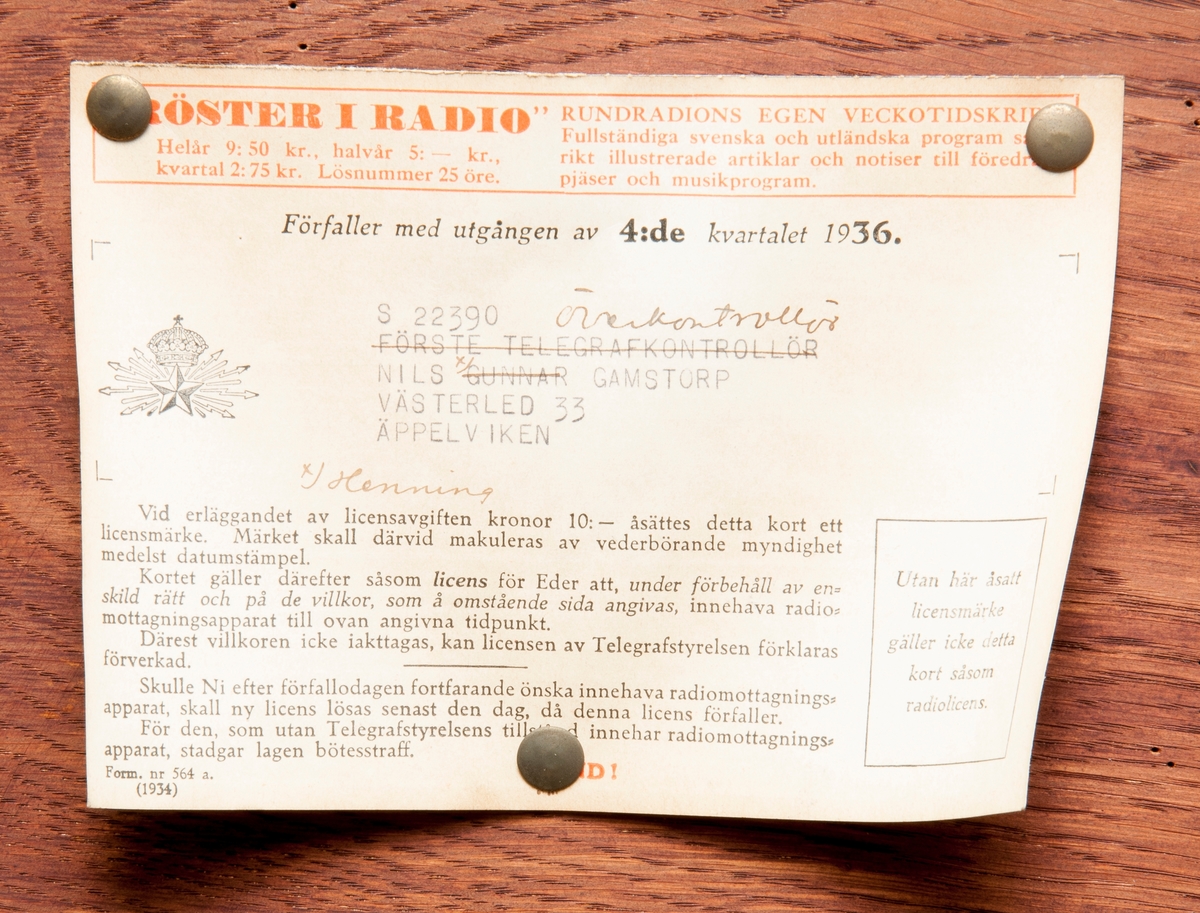 RÖSTER I RADIO”
Helår 9:50 kr., halvår 5:— kr.,
kvartal 2:75 kr. Lösnummer 25 öre.
RUNDRADIONS EGEN VECKOTIDSKRIF
Fullständiga svenska och utländska program
rikt illustrerade artiklar och notiser till
pjäser och musikprogram.
Förfaller med utgången av 4:de kvartalet 1936.
S 22390 Överkontrollör
FÖRSTE TELEGRAFKONTROLLÖR
NILS x/ GUNNAR GAMSTORP
VÄSTERLED 33
ÄPPELVIKEN
x/ Henning
Vid erläggandet av licensavgiften kronor 10:— åsättes detta kort ett
licensmärke. Märket skall därvid makuleras av vederbörande myndighet
medelst datumstämpel.
Kortet gäller därefter såsom licens för Eder att, under förbehåll av en=
skild rätt och på de villkor, som å omstående sida angivas, innehava radio=
mottagningsapparat till ovan angivna tidpunkt.
Därest villkoren icke iakttagas, kan licensen av Telegrafstyrelsen förklaras
förverkad.
Skulle Ni efter förfallodagen fortfarande önska innehava radiomottagnings=
apparat, skall ny licens lösas senast den dag, då denna licens förfaller.
För den, som utan Telegrafstyrelsens tillstånd innehar radiomottagnings=
apparat, stadgar lagen bötesstraff.
Form. nr 564 a.
(1934)
Utan här åsatt
licensmärke
gäller icke detta
kort såsom
radiolicens.